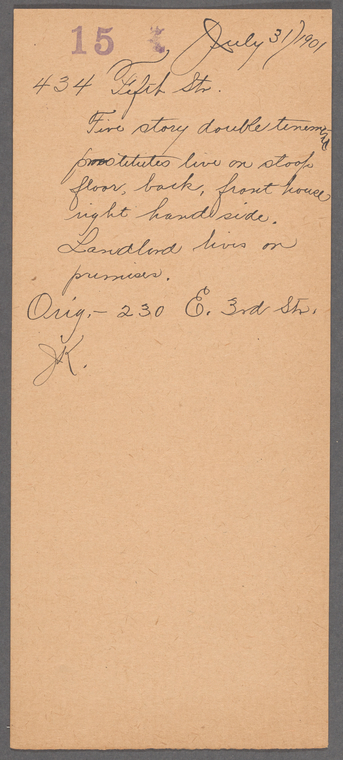 15 July 31/1901
434 Fifth Str.
Five story double tenement
prostitutes live on stoop
floor, back, front house
right hand side.
Landlord livis on
premises.
Orig.- 230 E. 3rd Str.
JK.